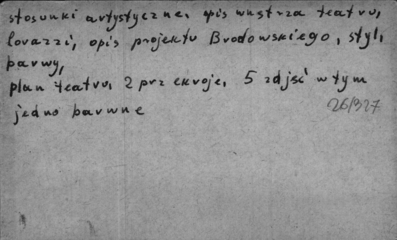 stosunki artystyczne, opis wnętrza teatru,
lovazzi, opis projektu Brodowskiego, styl,
barwy,
plan teatru, 2 przekroje, 5 zdjęć w tym
jedno barwne
26/327